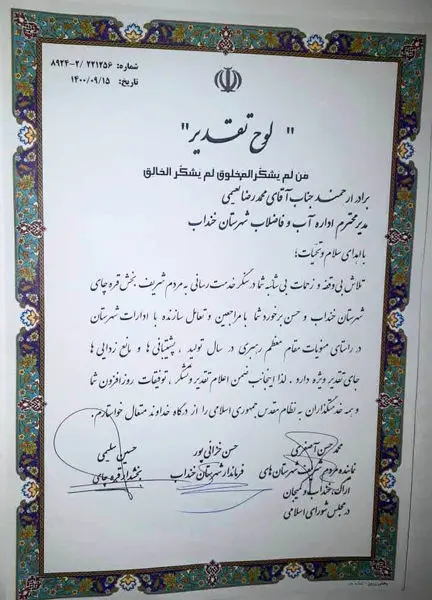 شماره: ۸۹۲۴-۲/ ۲۲۱۲۵۶
تاریخ: ۱۴۰۰/۰۹/۱۵
" لوح تقدیر "
مَن لم یشکُرالمخلوق لم یشکُر الخالق
برادر ارجمند جناب آقای محمدرضا نعیمی
مدیر محترم اداره آب و فاضلاب شهرستان خنداب
با اهدای سلام و تحیات؛
تلاش بی‌وقفه و زحمات بی شائبه شما در سنگر خدمت رسانی به مردم شریف بخش قره چای
شهرستان خنداب و حسن برخورد شما با مراجعین و تعامل سازنده با ادارات شهرستان
در راستای منویات مقام معظم رهبری در سال تولید ، پشتیبانی ها و مانع زدایی ها
جای تقدیر ویژه دارد . لذا اینجانب ضمن اعلام تقدیر و تشکر ، توفیقات روزافزون شما
و همه خدمتگذاران به نظام مقدس جمهوری اسلامی را از درگاه خداوند متعال خواستارم.
محمدحسن آصفری
نماینده مردم شریف شهرستان های
اراک، خنداب و کمیجان
در مجلس شورای اسلامی
حسن خزائی پور
فرماندار شهرستان خنداب
حسین سلیمی
بخشدار قره چای